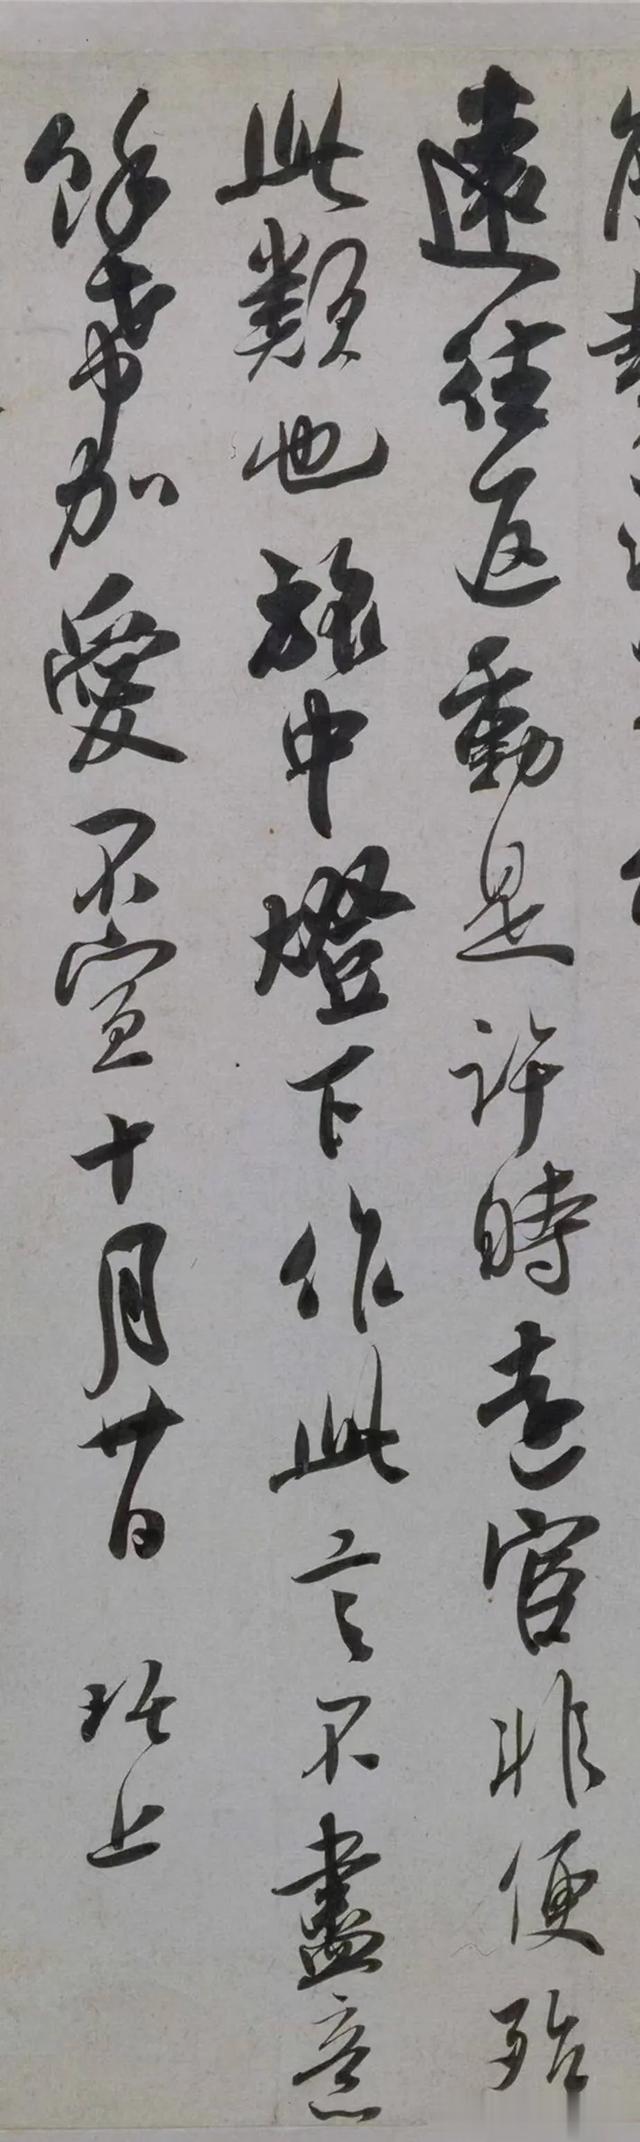 遠往返動是許時遠官非便殆
此類也旅中燈下作此言不盡意
餘希加愛不宣十月廿日 珪上